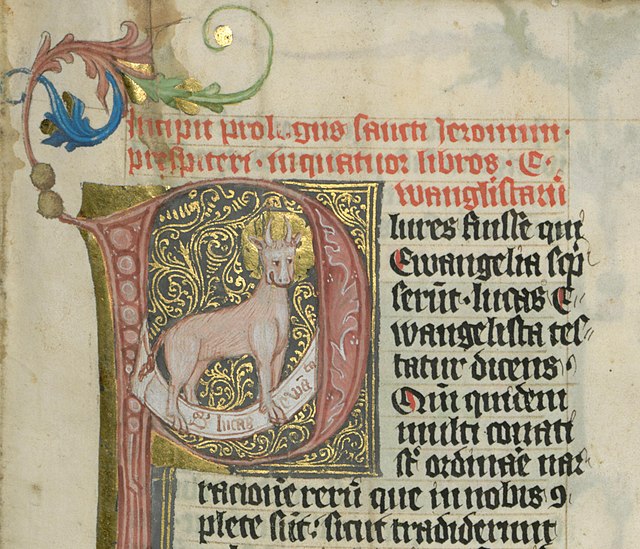 Incipit prologus sancti Jeronimi.
presbiteri. in quatuor libros. E
wanglistarū
Plures fuisse qui
Ewangelia scͥp
serūt. lucas E
wangelista tes
tatur dicens.
Qm̄ quidem
multi conati
sūt ordinare nar
S lucas ewā
racionē rerū que in nobis ꝯ
plete sūt: sicut tradiderunt